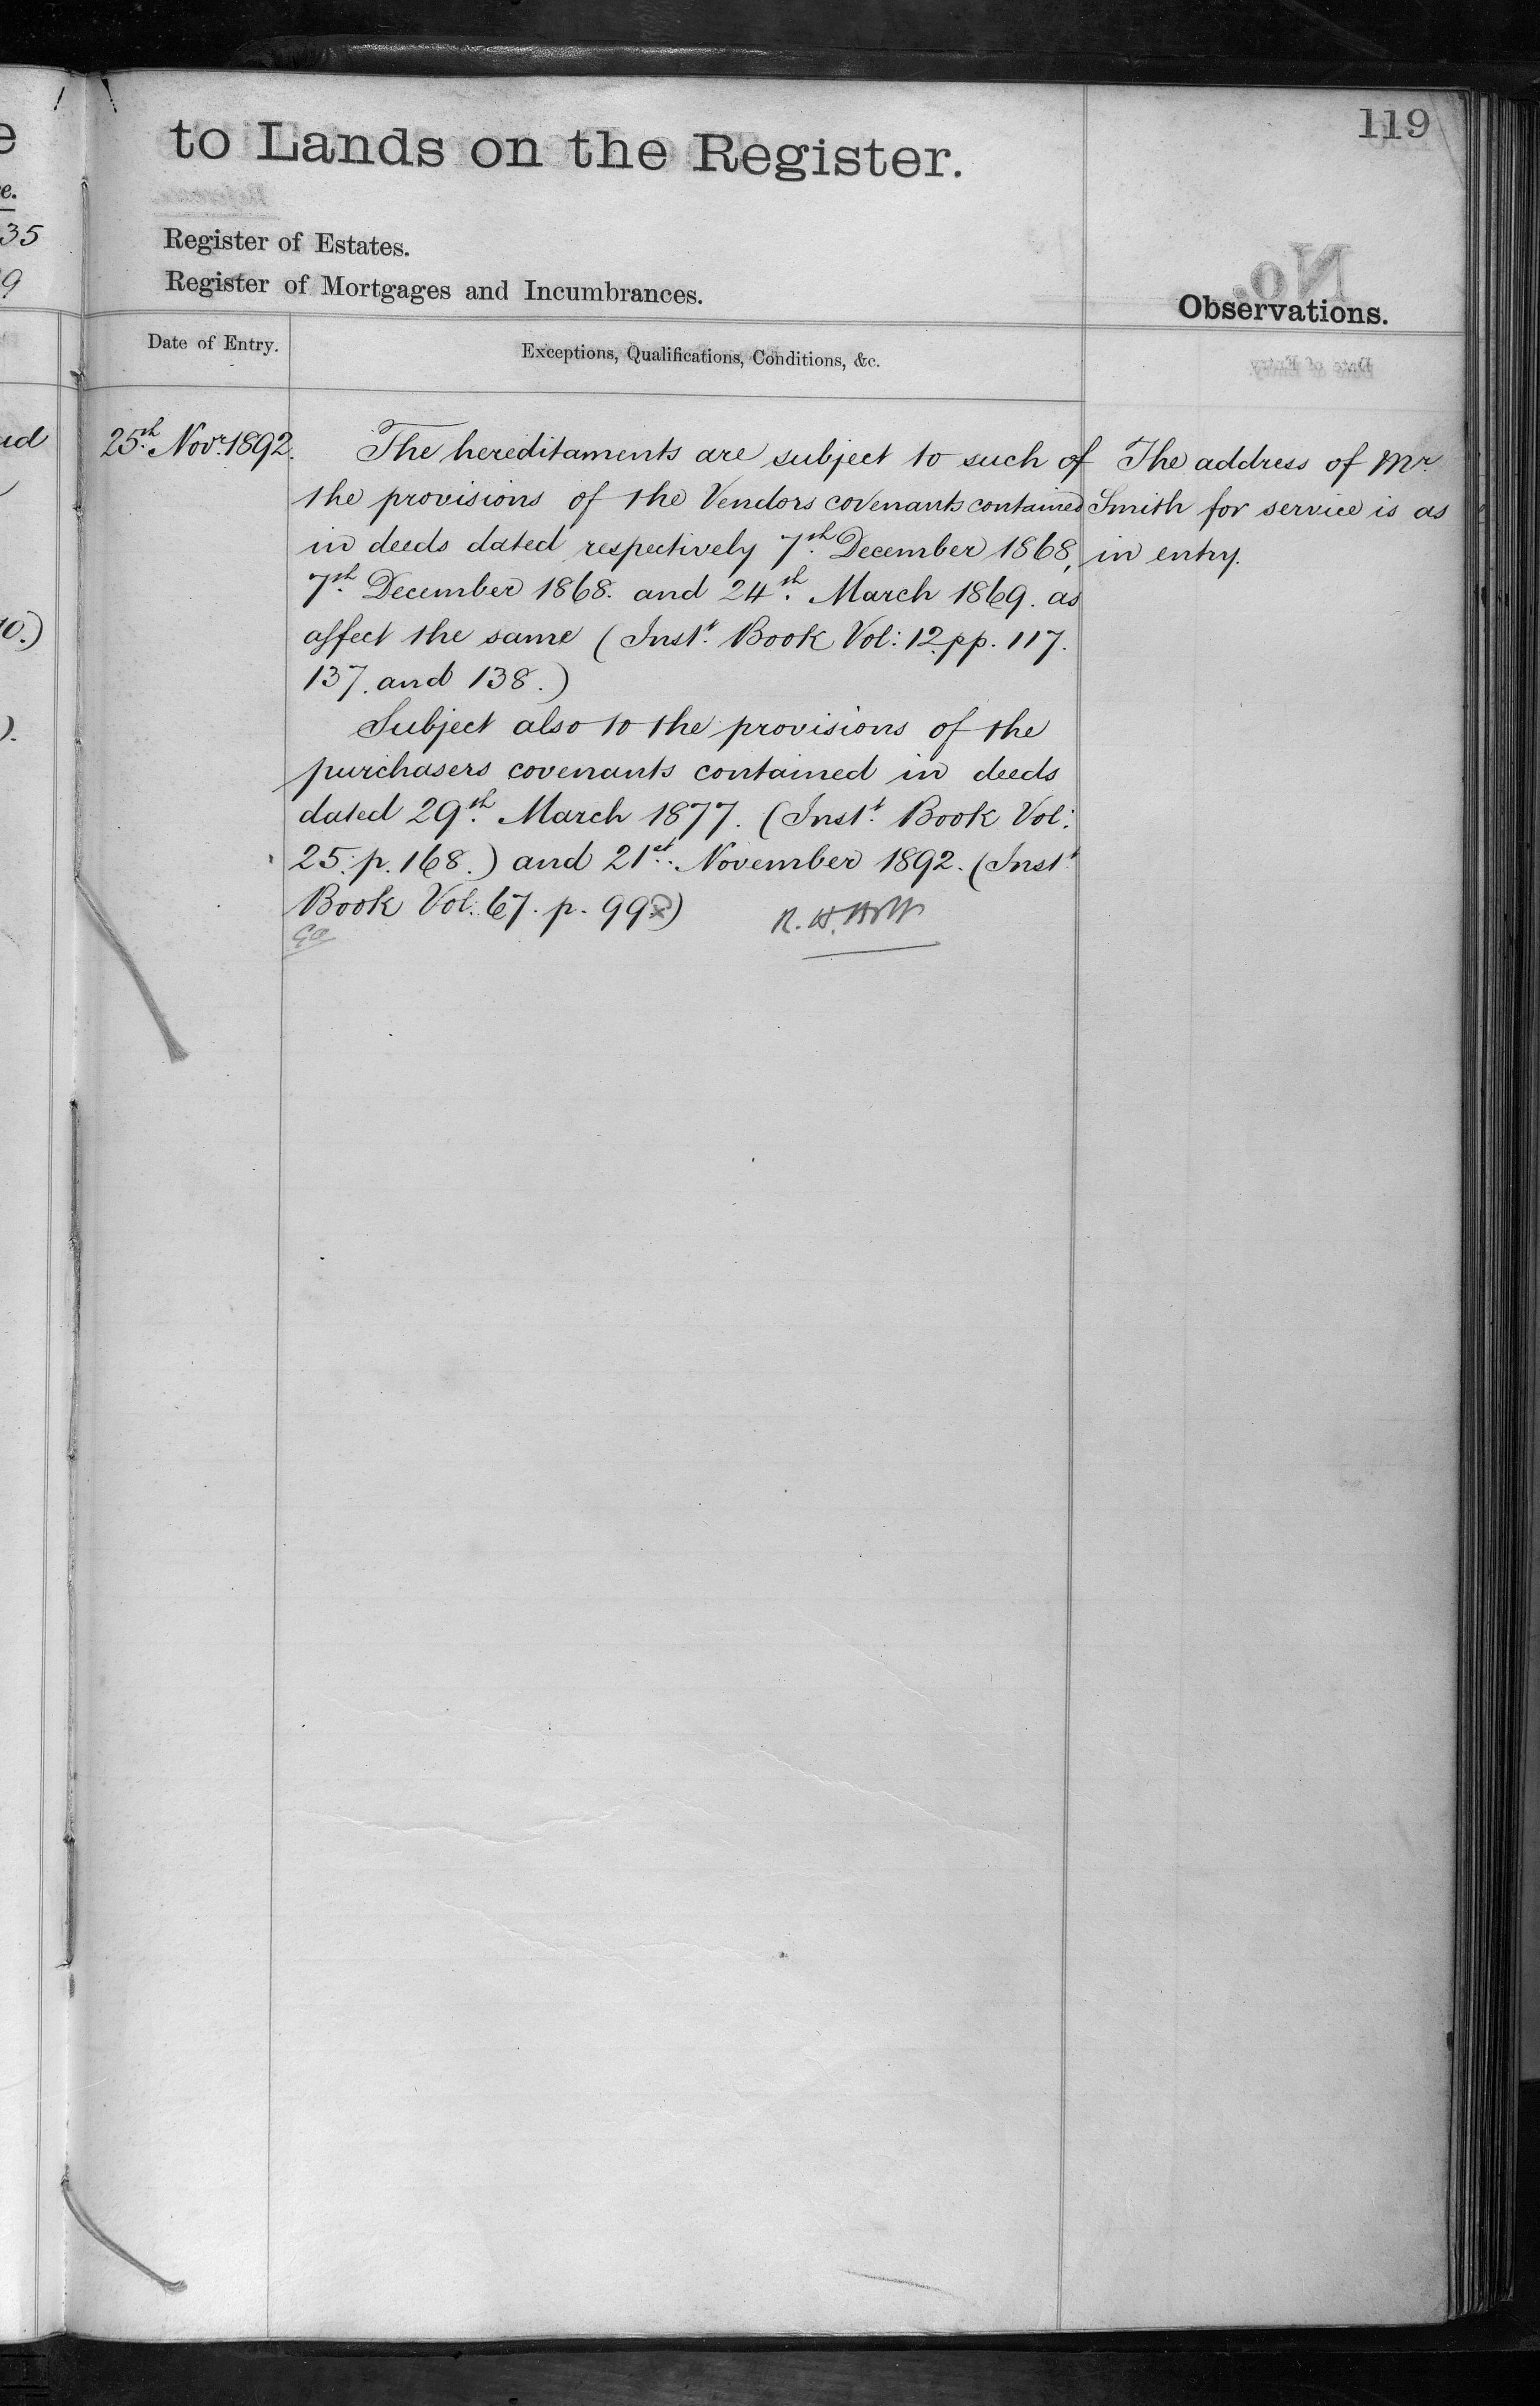 119
to Lands on the Register.
Register of Estates.
Register of Mortgages and Incumbrances.
Observations.
Date of Entry.
Exceptions, Qualifications, Conditions, &c.
25th Novr 1892.
The hereditaments are subject to such of
the provisions of the Vendors covenants contained
in deeds dated respectively 7th December 1868,
7th December 1868. and 24th March 1869. as
affect the same (Inst. Book Vol: 12. pp. 117.
137. and 138.)
Subject also to the provisions of the
purchasers covenants contained in deeds
dated 29th March 1877. (Inst. Book Vol:
25. p. 168.) and 21st November 1892. (Inst.
Book Vol. 67. p. 99)
R. H. Holt
The address of Mr
Smith for service is as
in entry.